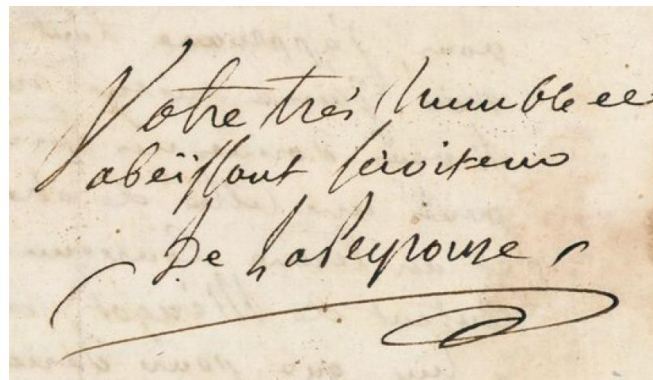 Votre très humble et
obeïssant serviteur
De Lapeyrouse